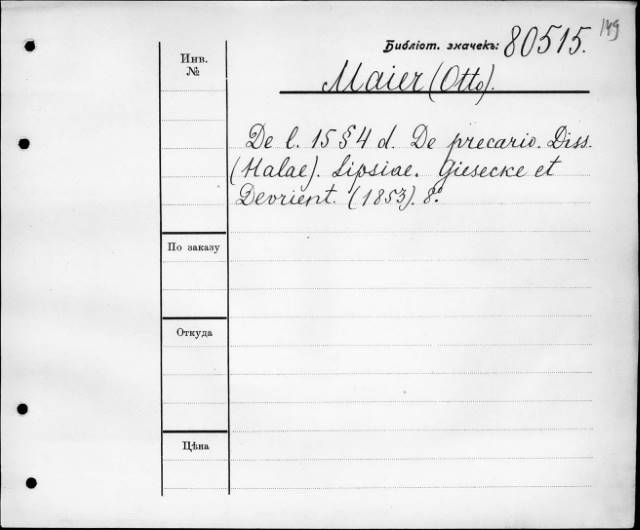 149
Библіот. значекъ: 80515.
Инв.
№
Maier (Otto).
De l. 15 § 4 d. De precario. Diss.
(Halae). Lipsiae. Giesecke et
Devrient. (1853). 8°.
По заказу
Откуда
Цѣна